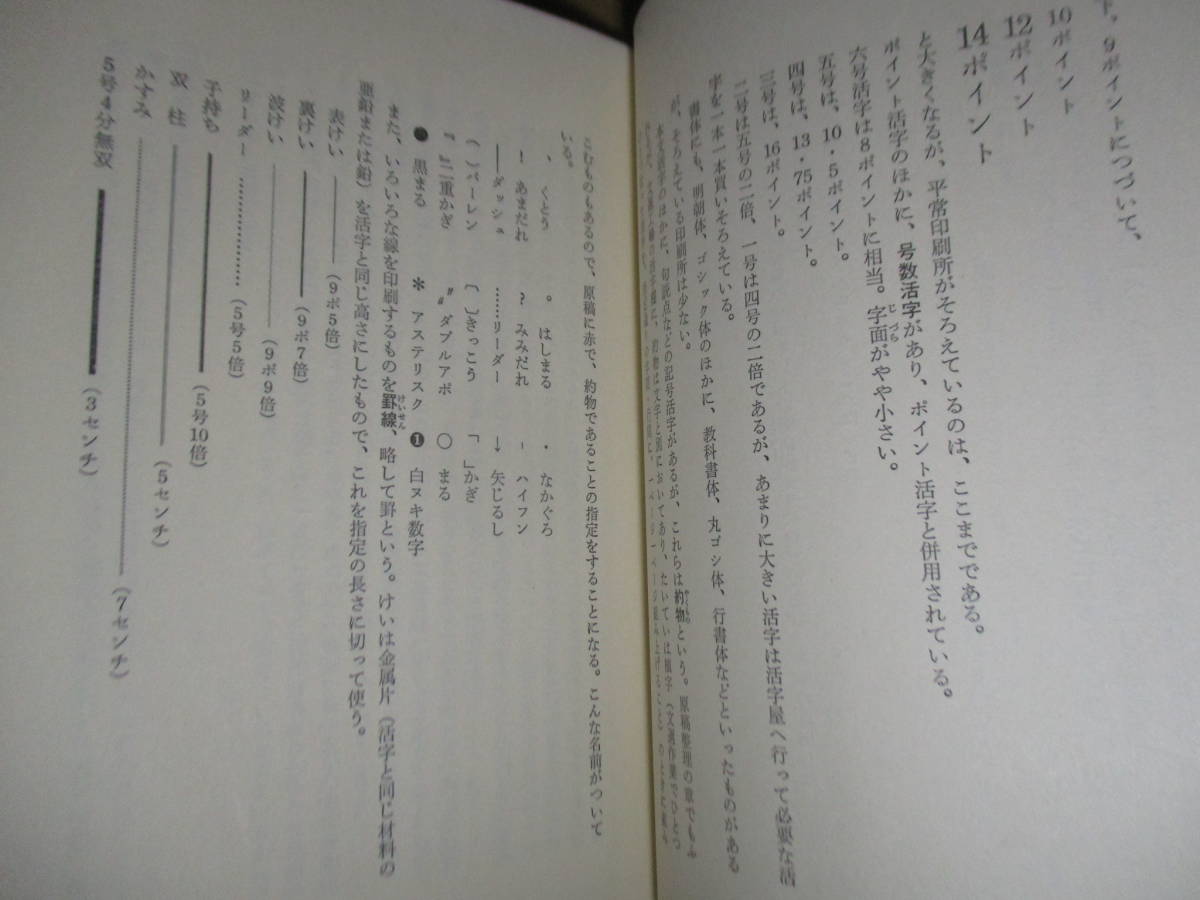 下、9ポイントについて、
10ポイント
12ポイント
14ポイント
と大きくなるが、平常印刷所がそろえているのは、ここまでである。
ポイント活字のほかに、号数活字があり、ポイント活字と併用されている。
六号活字は8ポイントに相当。字面がやや小さい。
じづら
五号は、10・5ポイント。
四号は、13・75ポイント。
三号は、16ポイント。
二号は五号の二倍、一号は四号の二倍であるが、あまりに大きい活字は活字屋へ行って必要な活
字を一本一本買いそろえている。
書体にも、明朝体、ゴシック体のほかに、教科書体、丸ゴシ体、行書体などといったものがある
が、そろえている印刷所は少ない。
本文活字のほかに、句読点などの記号活字があるが、これらは約物という。原稿整理の章でもふ
やくもの
約物は文字と別においてあり、たいていは植字（文選作業でひとつ
こむものもあるので、原稿に赤で、約物であることの指定をすることになる。こんな名前がついて
いる。
、くとう 。はしまる ・なかぐろ
！あまだれ ？みみだれ ‐ハイフン
―ダッシュ ……リーダー ↓矢じるし
（ ）パーレン 〔 〕きっこう 「 」かぎ
『 』二重かぎ 〝〟ダブルアポ ○まる
●黒まる ＊アステリスク ❶白ヌキ数字
また、いろいろな線を印刷するものを罫線、略して罫という。けいは金属片（活字と同じ材料の
けいせん
亜鉛または鉛）を活字と同じ高さにしたもので、これを指定の長さに切って使う。
表けい（9ポ5倍）
裏けい（9ポ7倍）
波けい（9ポ9倍）
リーダー（5号5倍）
子持ち（5号10倍）
双柱（5センチ）
かすみ（7センチ）
5号4分無双（3センチ）